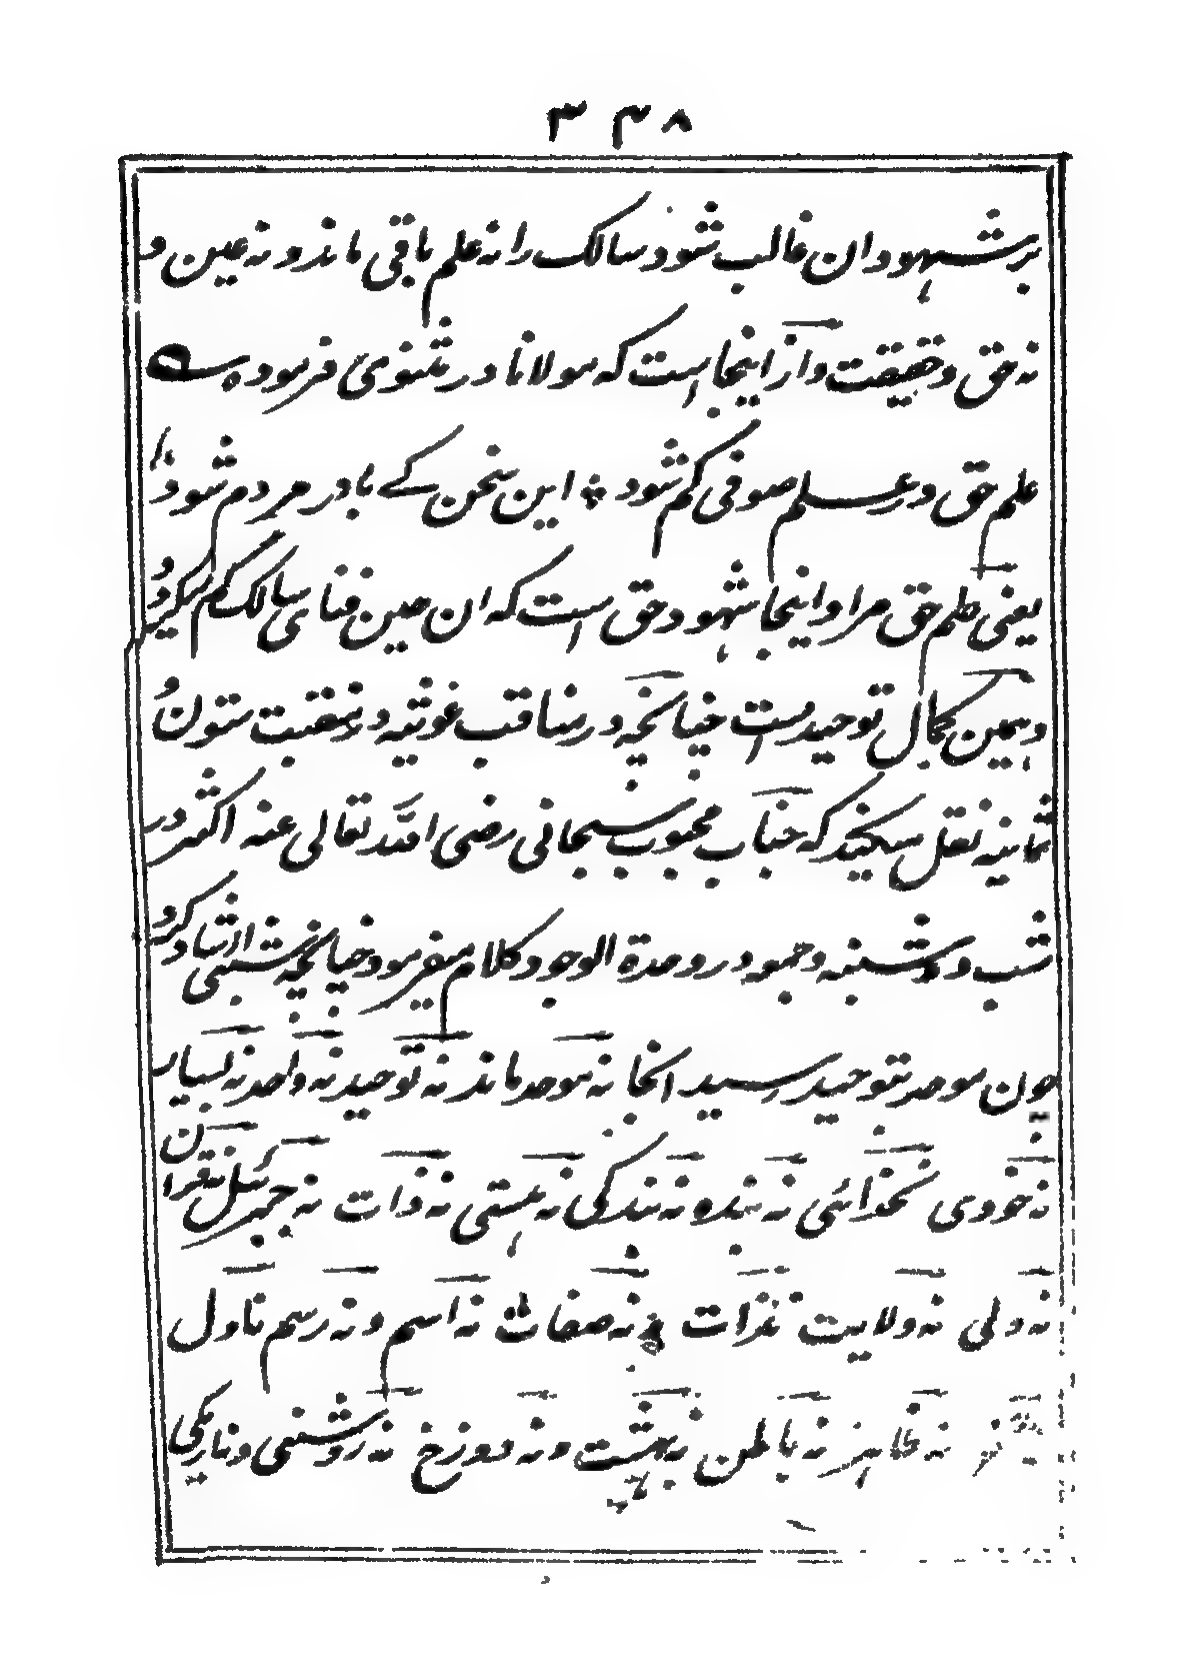 ۳۴۸
بر شهود ان غالب شود سالک را نه علم باقی ماند و نه عین و
نه حق و حقیقت و از اینجا است که مولانا در مثنوی فرموده
علم حق در علم صوفی گم شود این سخن کے باور مردم شود
یعنی علم حق مراد اینجا شهود حق است که ان عین فنای سالک گم میگردد
و همین کمال توحید است چنانچه در مناقب غوثیه در منقبت ستون
ثمانینه نقل میکنید که جناب محبوب سبحانی رضی الله تعالی عنه اکثر در
شب دوشنبه و جمعه در وحدة الوجود کلام میفرمود چنانچه شبی ارشاد کرد
چون موحد بتوحید رسید انجا نه موحد ماند نه توحید نه واحد نه بسیار
نه خودی نخدائی نه بنده نه بندگی نه هستی نه ذات نه جبرئیل نه قران
نه ولی نه ولایت نه ذات نه صفات نه اسم و نه رسم تا دل
نه ظاهر نه باطن نه بهشت و نه دوزخ نه روشنی و تاریکی